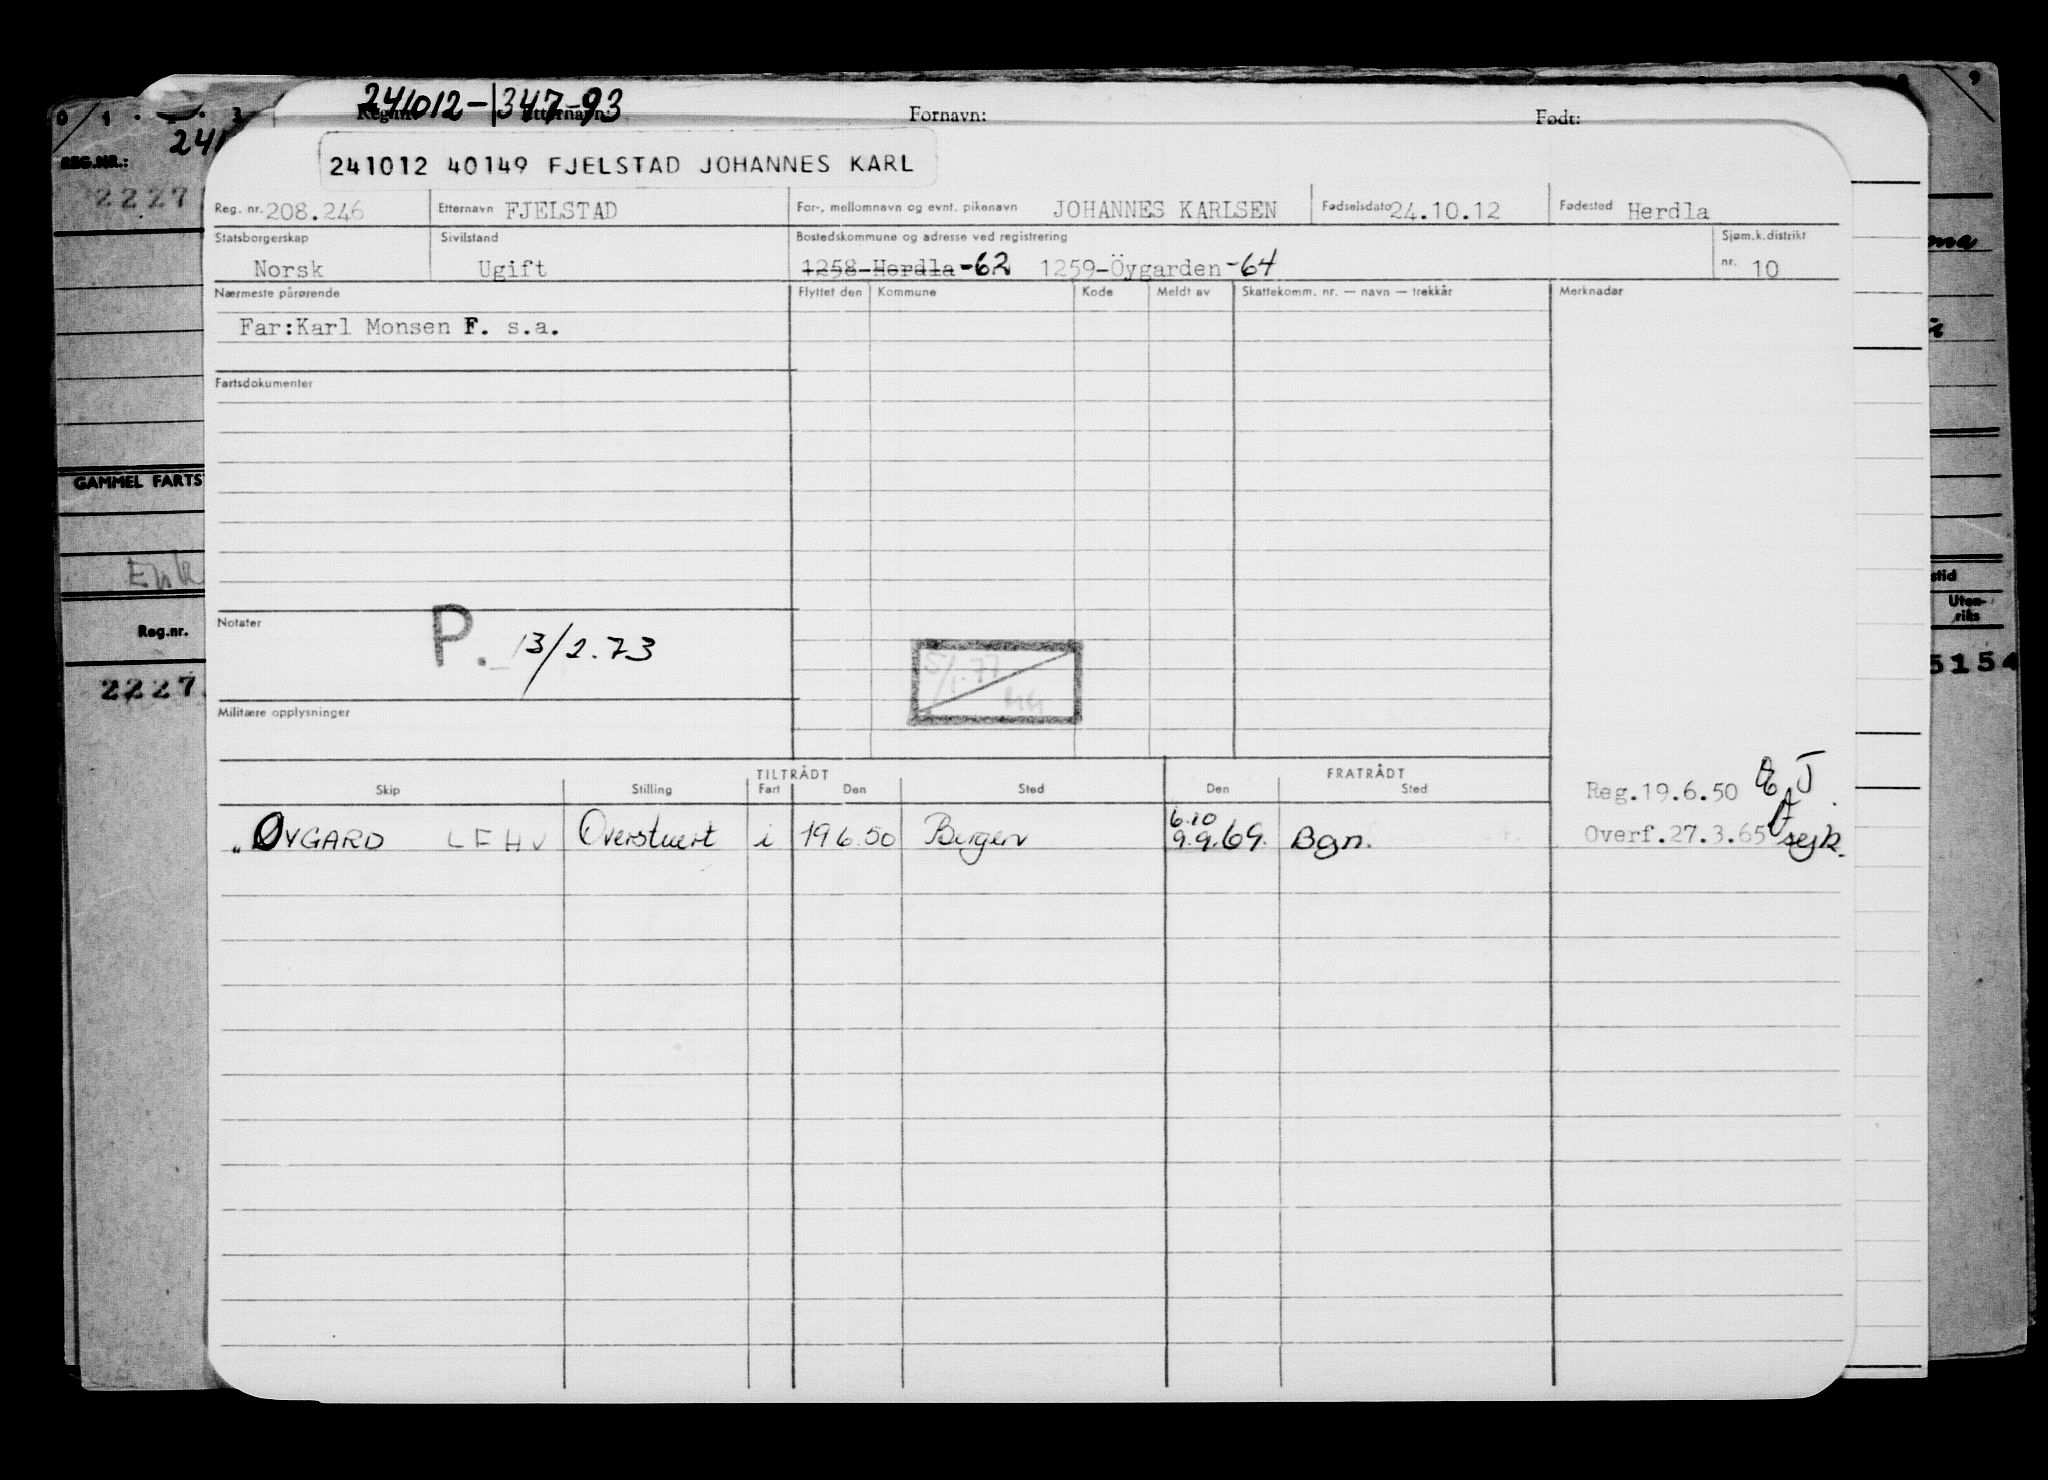 241012-34793
Reg.nr. Etternavn: Fornavn: Født:
REG.NR.:
241012 40149 FJELSTAD JOHANNES KARL
2227
Reg. nr. 208.246 Etternavn FJELSTAD For-, mellomnavn og evnt. pikenavn JOHANNES KARLSEN Fødselsdato 24.10.12 Fødested Herdla
Statsborgerskap Sivilstand Bostedskommune og adresse ved registrering Sjøm.k.distrikt
Norsk Ugift 1258-Herdla -62 1259-Öygarden -64 nr. 10
Nærmeste pårørende Flyttet den Kommune Kode Meldt av Skattekomm. nr. — navn — trekkår Merknader
Far:Karl Monsen F. s.a.
Fartsdokumenter
GAMMEL FARTS
stid
Uten-
riks
Reg.nr.
Notater
P. 13/2.73
5/1.77
5154
2227
Militære opplysninger
TILTRÅDT FRATRÅDT
Skip Stilling Fart Den Sted Den Sted
Reg.19.6.50
6.10
"ØYGARD LEHV Overstuert i 19 6.50 Bergen 9.9.69. Bgn.
Overf.27.3.65 sejk.